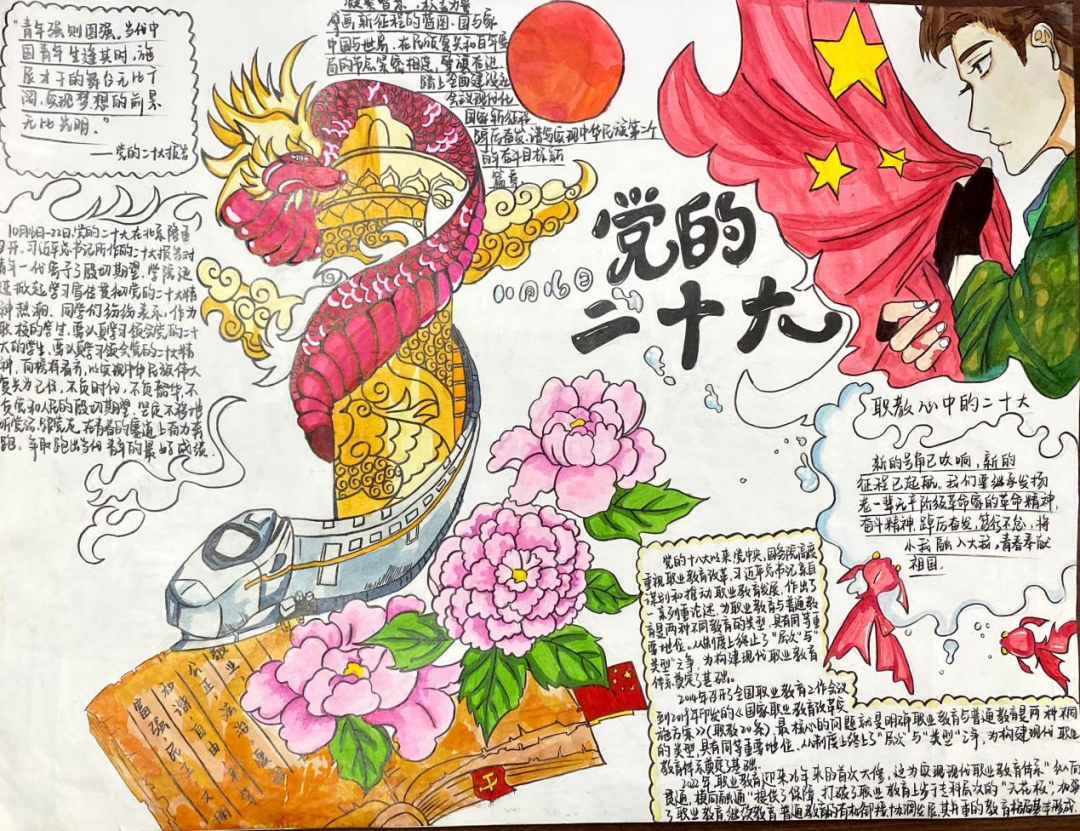 "青年强则国强。当代中
国青年生逢其时，施
展才干的舞台无比广
阔，实现梦想的前景
无比光明。"
——党的二十大报告
擘画新征程的蓝图。国与家
中国与世界，在民族复兴和百年变
踏上全面建设社
会议现代化
国家新征程
踔厉奋发、谱写实现中华民族第二个
的奋斗目标新
篇章
党的
二十大
10月16日
10月16日-22日，党的二十大在北京隆重
召开。习近平总书记所作的二十大报告对
青年一代寄予了殷切期望。学院迅
速掀起学习宣传贯彻党的二十大精
神热潮，同学们纷纷表示，作为
职校的学生，要认真学习领会党的二十
大的学生，要认真学习领会党的二十大精
神，以实现中华民族伟大
复兴为己任，不负时代，不负韶华，不
负党和人民的殷切期望，坚定不移地
听党话、跟党走，在青春的赛道上奋力奔
跑，争取跑出当代青年的最好成绩。
职教心中的二十大
新的号角已吹响，新的
征程已起航。我们要继承发扬
老一辈无产阶级革命家的革命精神，
奋斗精神，踔厉奋发，笃行不怠，将
小我融入大我，青春奉献
祖国。
党的十八大以来，党中央、国务院高度
重视职业教育改革，习近平总书记亲自
谋划和推动职业教育发展，作出了
一系列重论述，为职业教育与普通教
育是两种不同教育的类型，具有同等重
要地位。从制度上终止了"层次"与"
类型"之争，为构建现代职业教育
体系奠定了基础。
2014年召开了全国职业教育工作会议
到2019年印发的《国家职业教育改革实
施方案》（职教20条），最核心的问题就是明确职业教育与普通教育是两种不同
的类型，具有同等重要地位，从制度上终止了"层次"与"类型"之争，为构建现代职业
教育体系奠定基础。
2022年，职业教育迎来26年来的首次大修，这为实现现代职业教育体系"纵向
贯通、横向融通"提供了保障，打破了职业教育上步于专科层次的"天花板"，
了职业教育继续教育普通教育的有机衔接、协调发展，其并重的教育格局基本形成。
富强 民主 文明
和谐 自由
公正 法治
敬业